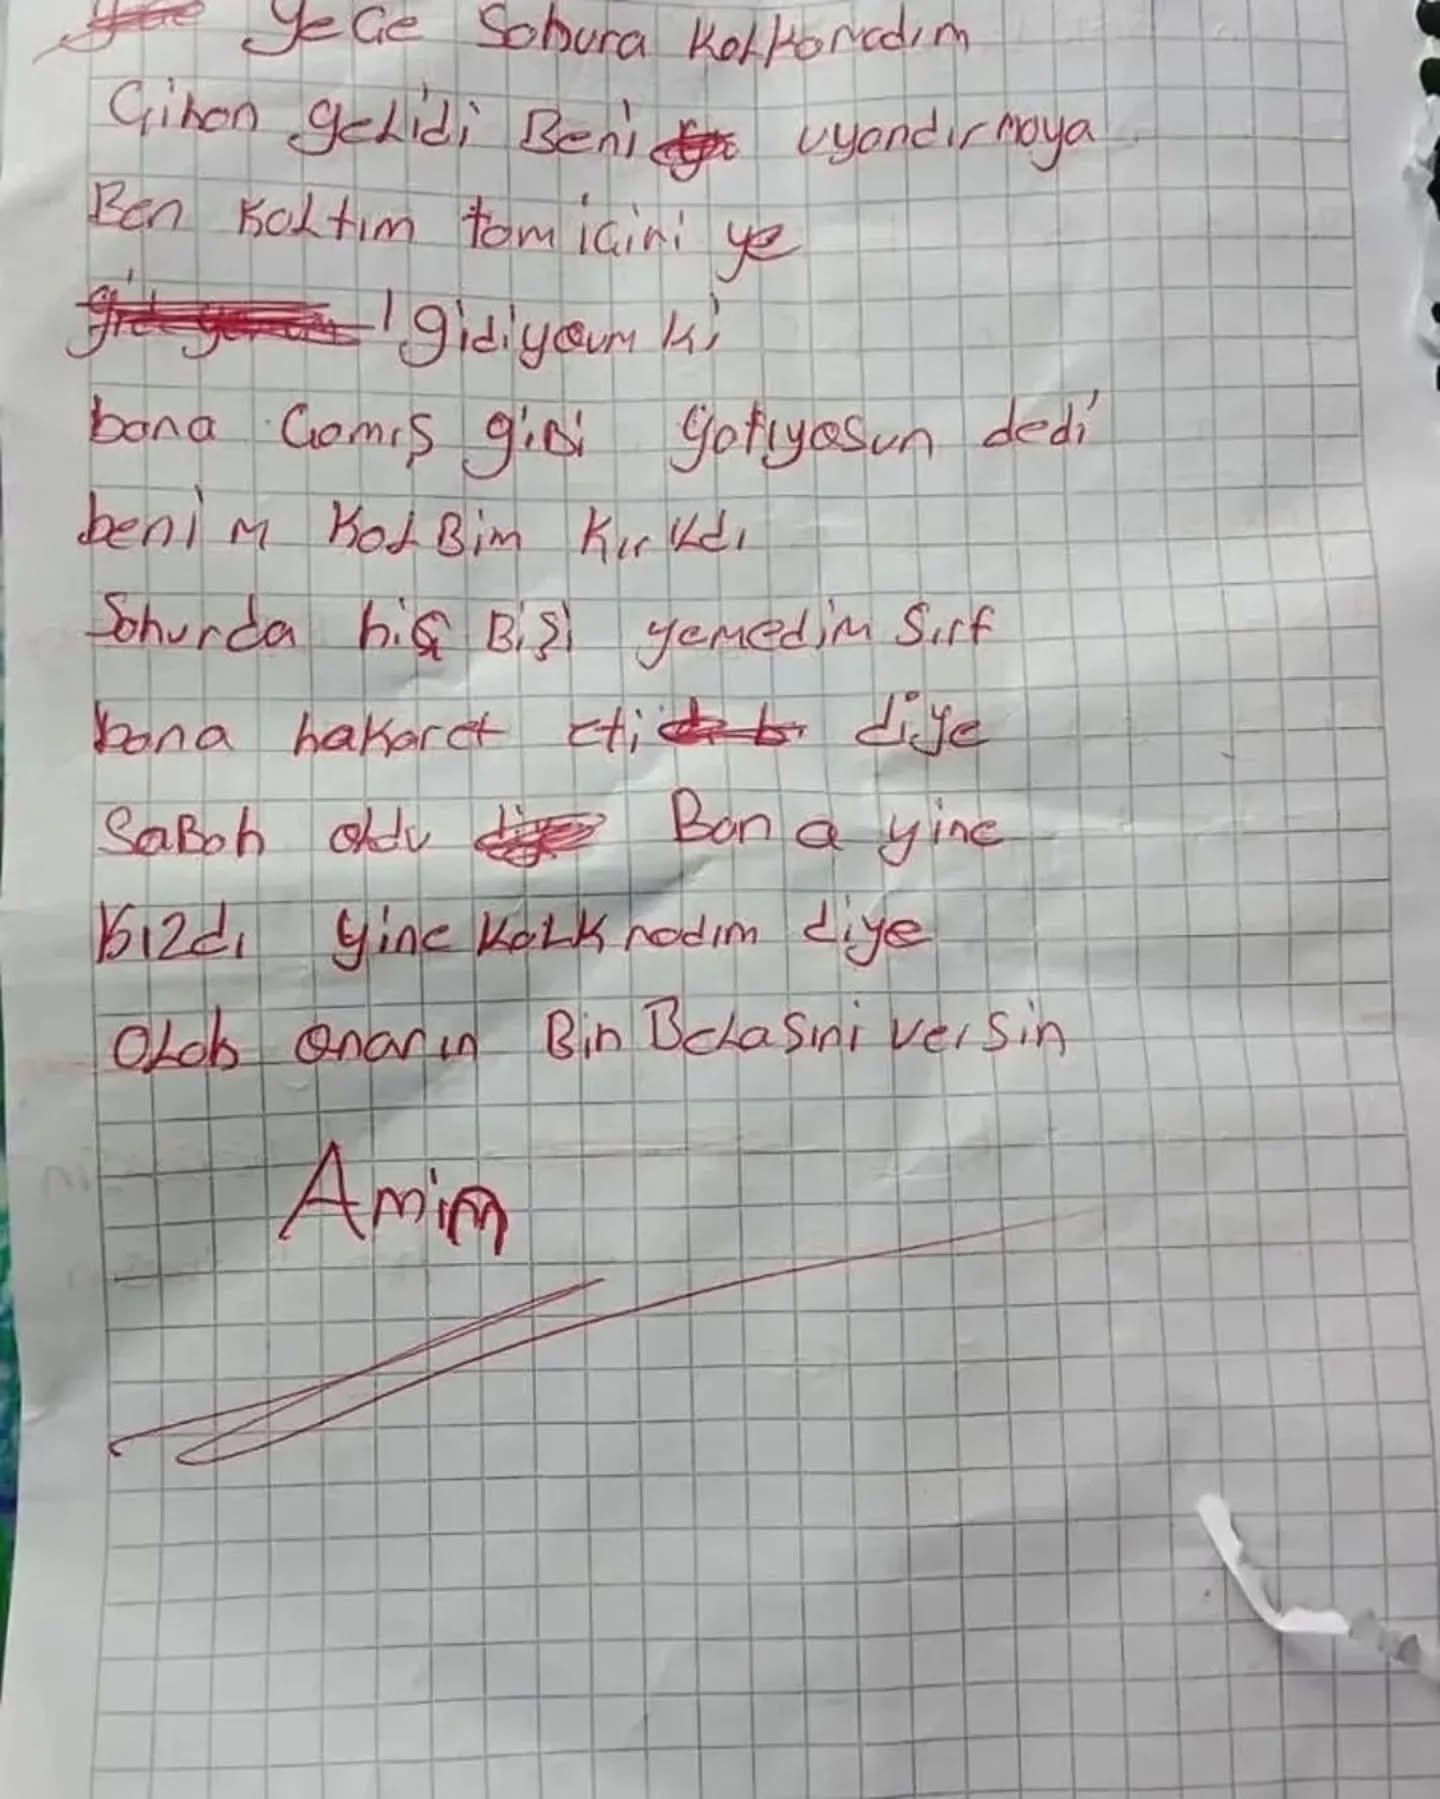 yeGe Sohura Kalkamadım
Cihan gelidi Beni uyandırmaya
Ben Kaltım tam icini ye
gidiyoum ki
bana Camış giBi yatıyosun dedi
benim KalBim Kırkdı
Sohurda hiç Bişi yemedim Sırf
bana hakaret eti diye
SaBah oldu Bana yine
Kızdı yine Kalkmadım diye
Olah onarın Bin Belasini versin
Amim